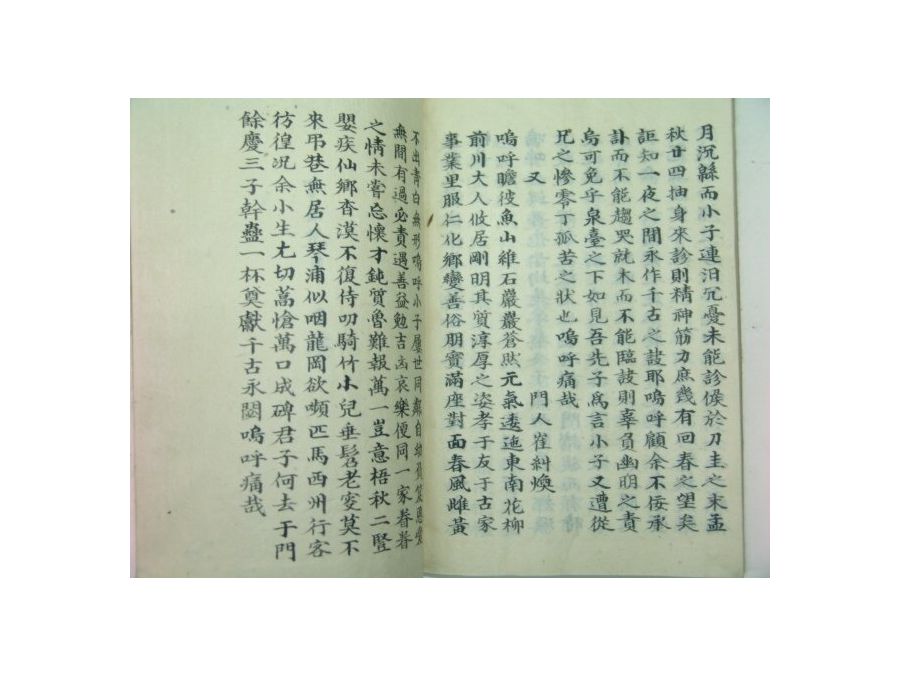 月沉緜而小子連汨冗憂未能診候於刀圭之末孟
秋廿四抽身來診則精神筋力庶幾有回春之望矣
詎知一夜之間永作千古之訣耶嗚呼顧余不佞承
訃而不能趨哭就木而不能臨訣則辜負幽明之責
烏可免乎泉臺之下如見吾先子爲言小子又遭從
兄之慘零丁孤苦之狀也嗚呼痛哉
嗚呼又 門人崔糾煥
嗚呼瞻彼魚山維石巖巖蒼然元氣逶迤東南花柳
前川大人攸居剛明其質淳厚之姿孝于友于古家
事業里服仁化鄉變善俗朋賓滿座對面春風雌黃
不出靑白無形嗚呼小子屢世同鄰自幼負笈恩愛
無間有過必責遇善益勉吉凶哀樂便同一家眷眷
之情未嘗忘懷才鈍質魯難報萬一豈意梧秋二豎
嬰疾仙鄕杳漠不復侍叨騎竹小兒垂髫老叟莫不
來弔巷無居人琴浦似咽龍岡欲嚬匹馬西州行客
彷徨况余小生尤切蒿愴萬口成碑君子何去于門
餘慶三子幹蠱一杯奠獻千古永閟嗚呼痛哉